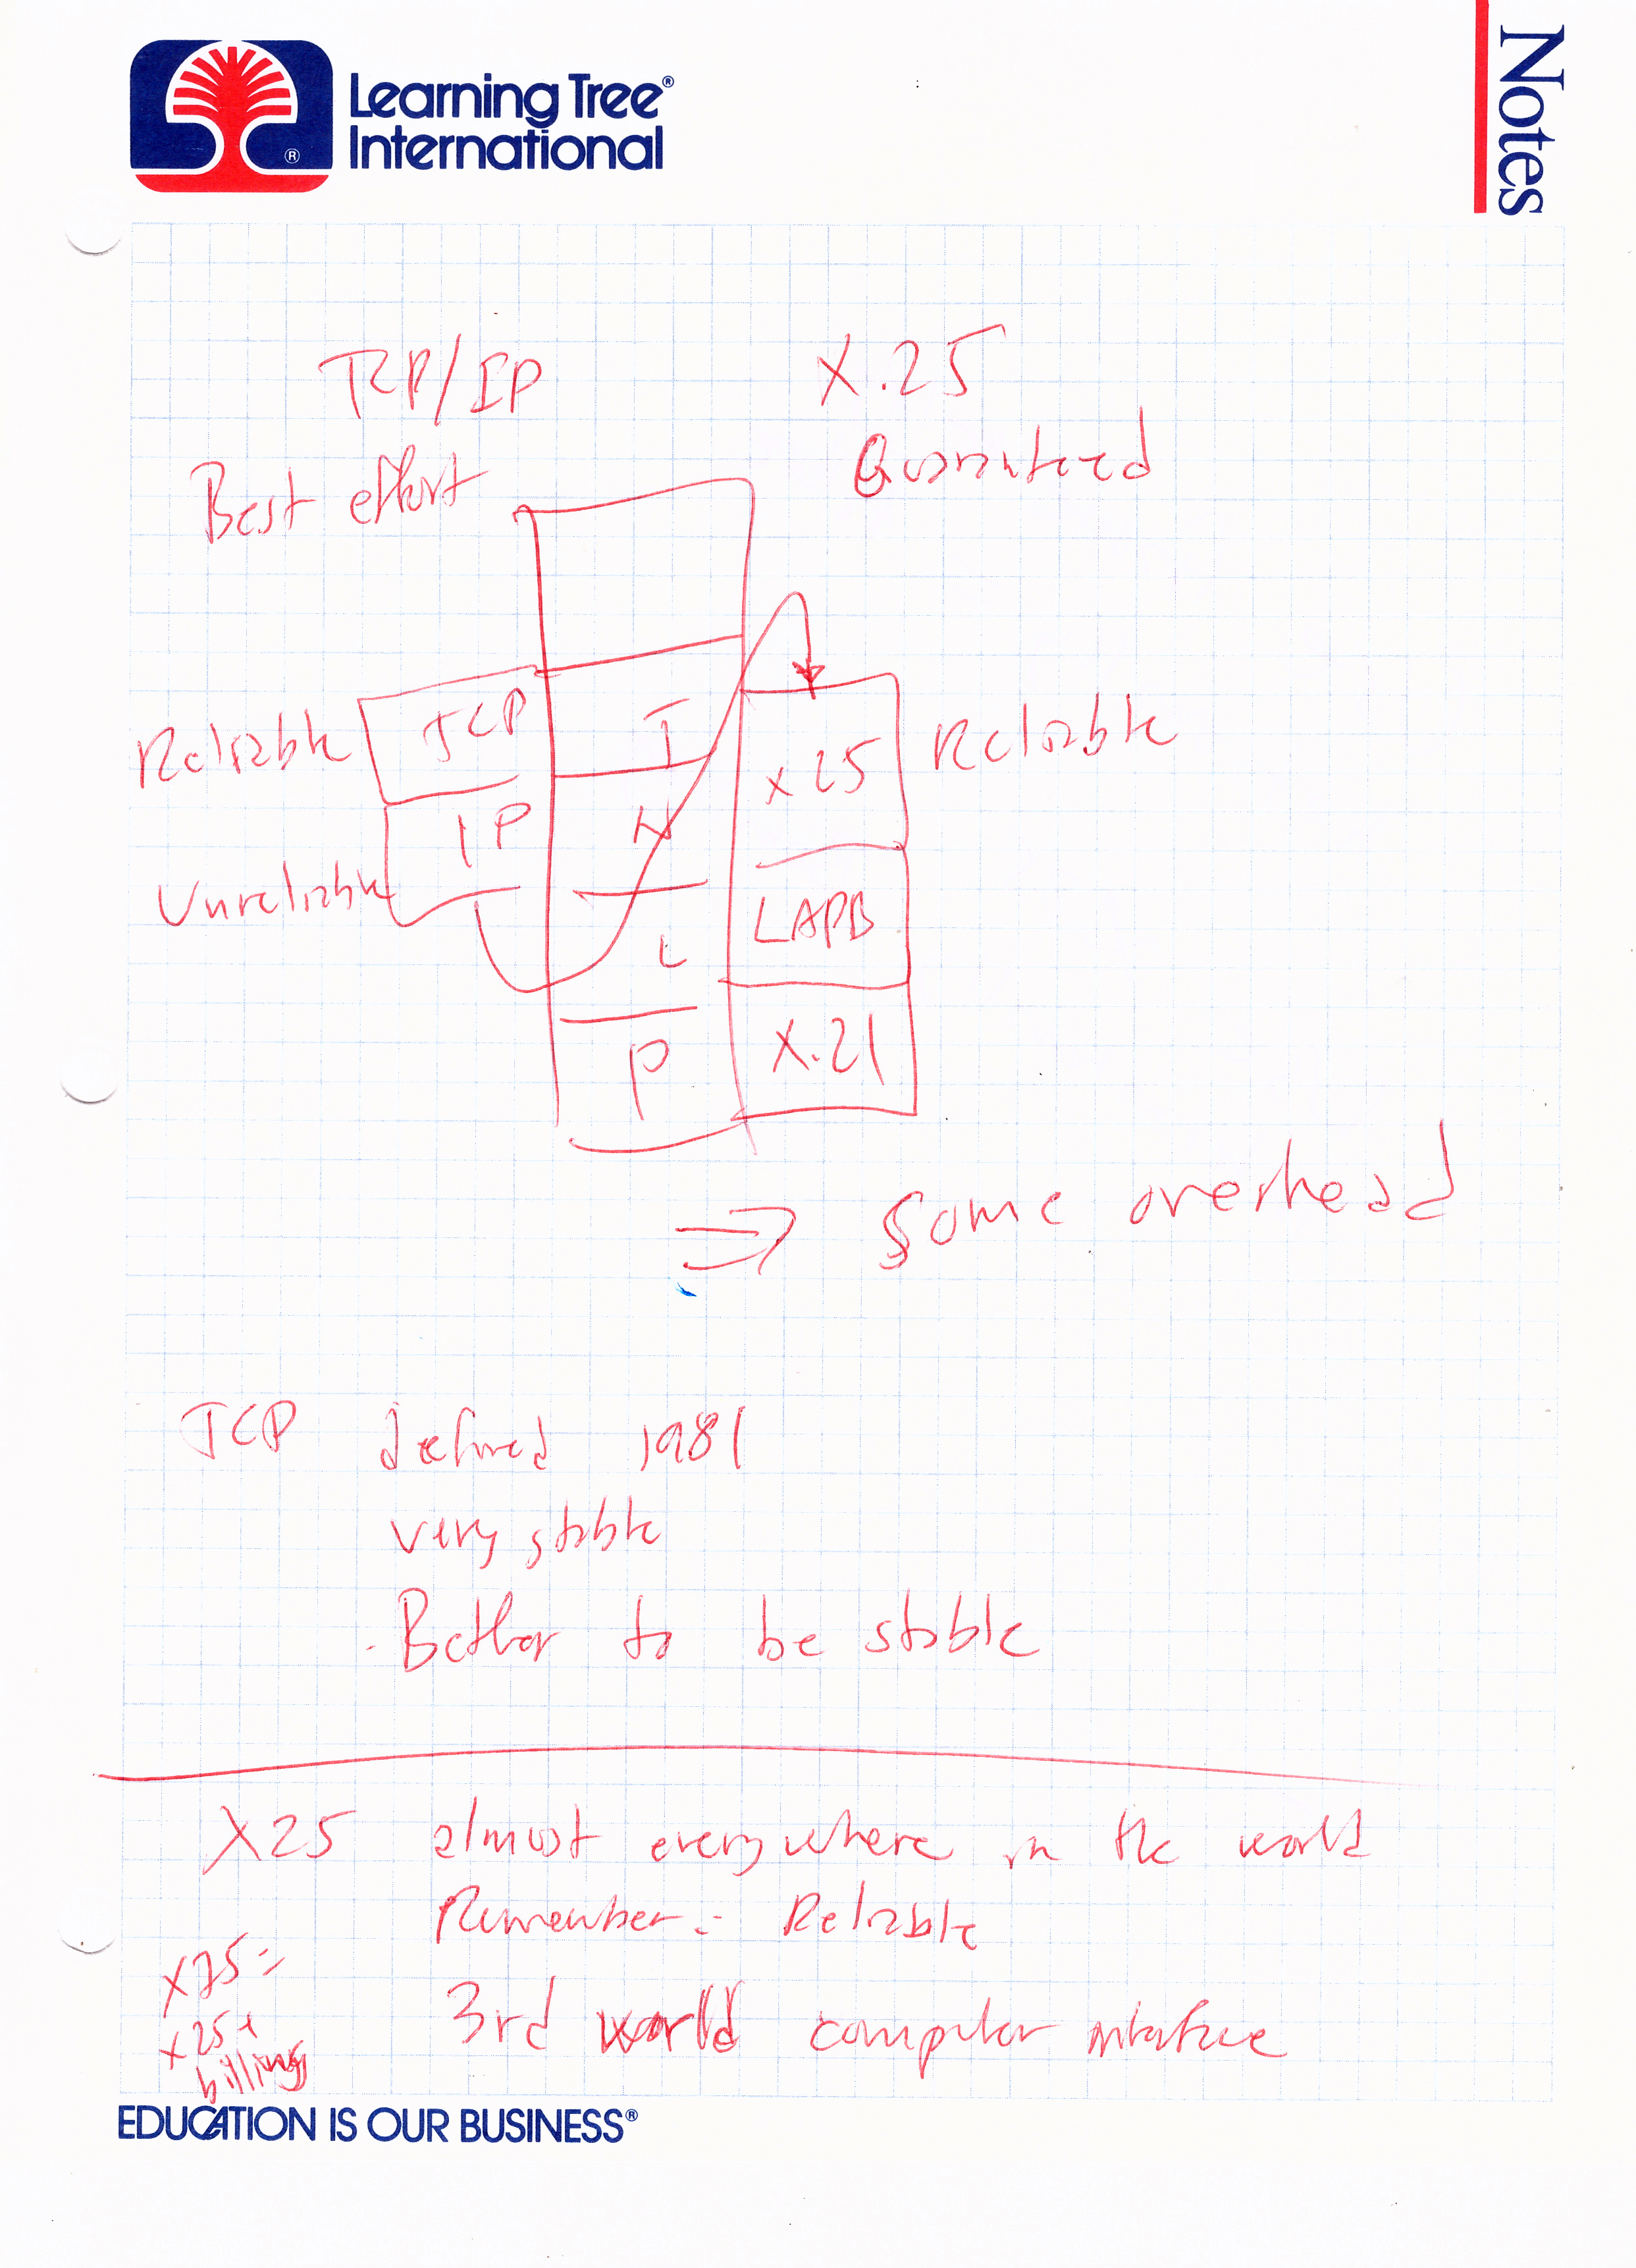 Learning Tree®
International
®
Notes
TCP/IP X.25
Best effort Guaranteed
Reliable TCP T X25 Reliable
IP N
Unreliable LAPB
L
P X.21
⇒ Some overhead
TCP defined 1981
very stable
- Better to be stable
X25 almost everywhere in the world
Remember: Reliable
X75=
X25+
billing
3rd world computer interface
EDUCATION IS OUR BUSINESS®